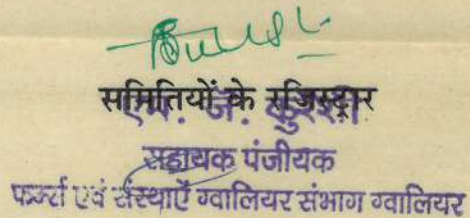 समितियों के रजिस्ट्रार
एम. जे. कुरैशी
सहायक पंजीयक
फर्म्स एवं संस्थाऐं ग्वालियर संभाग ग्वालियर